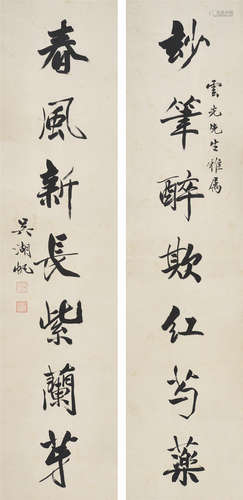 妙筆醉欺紅芍藥
雲光先生雅屬
春風新長紫蘭芽
吳湖帆